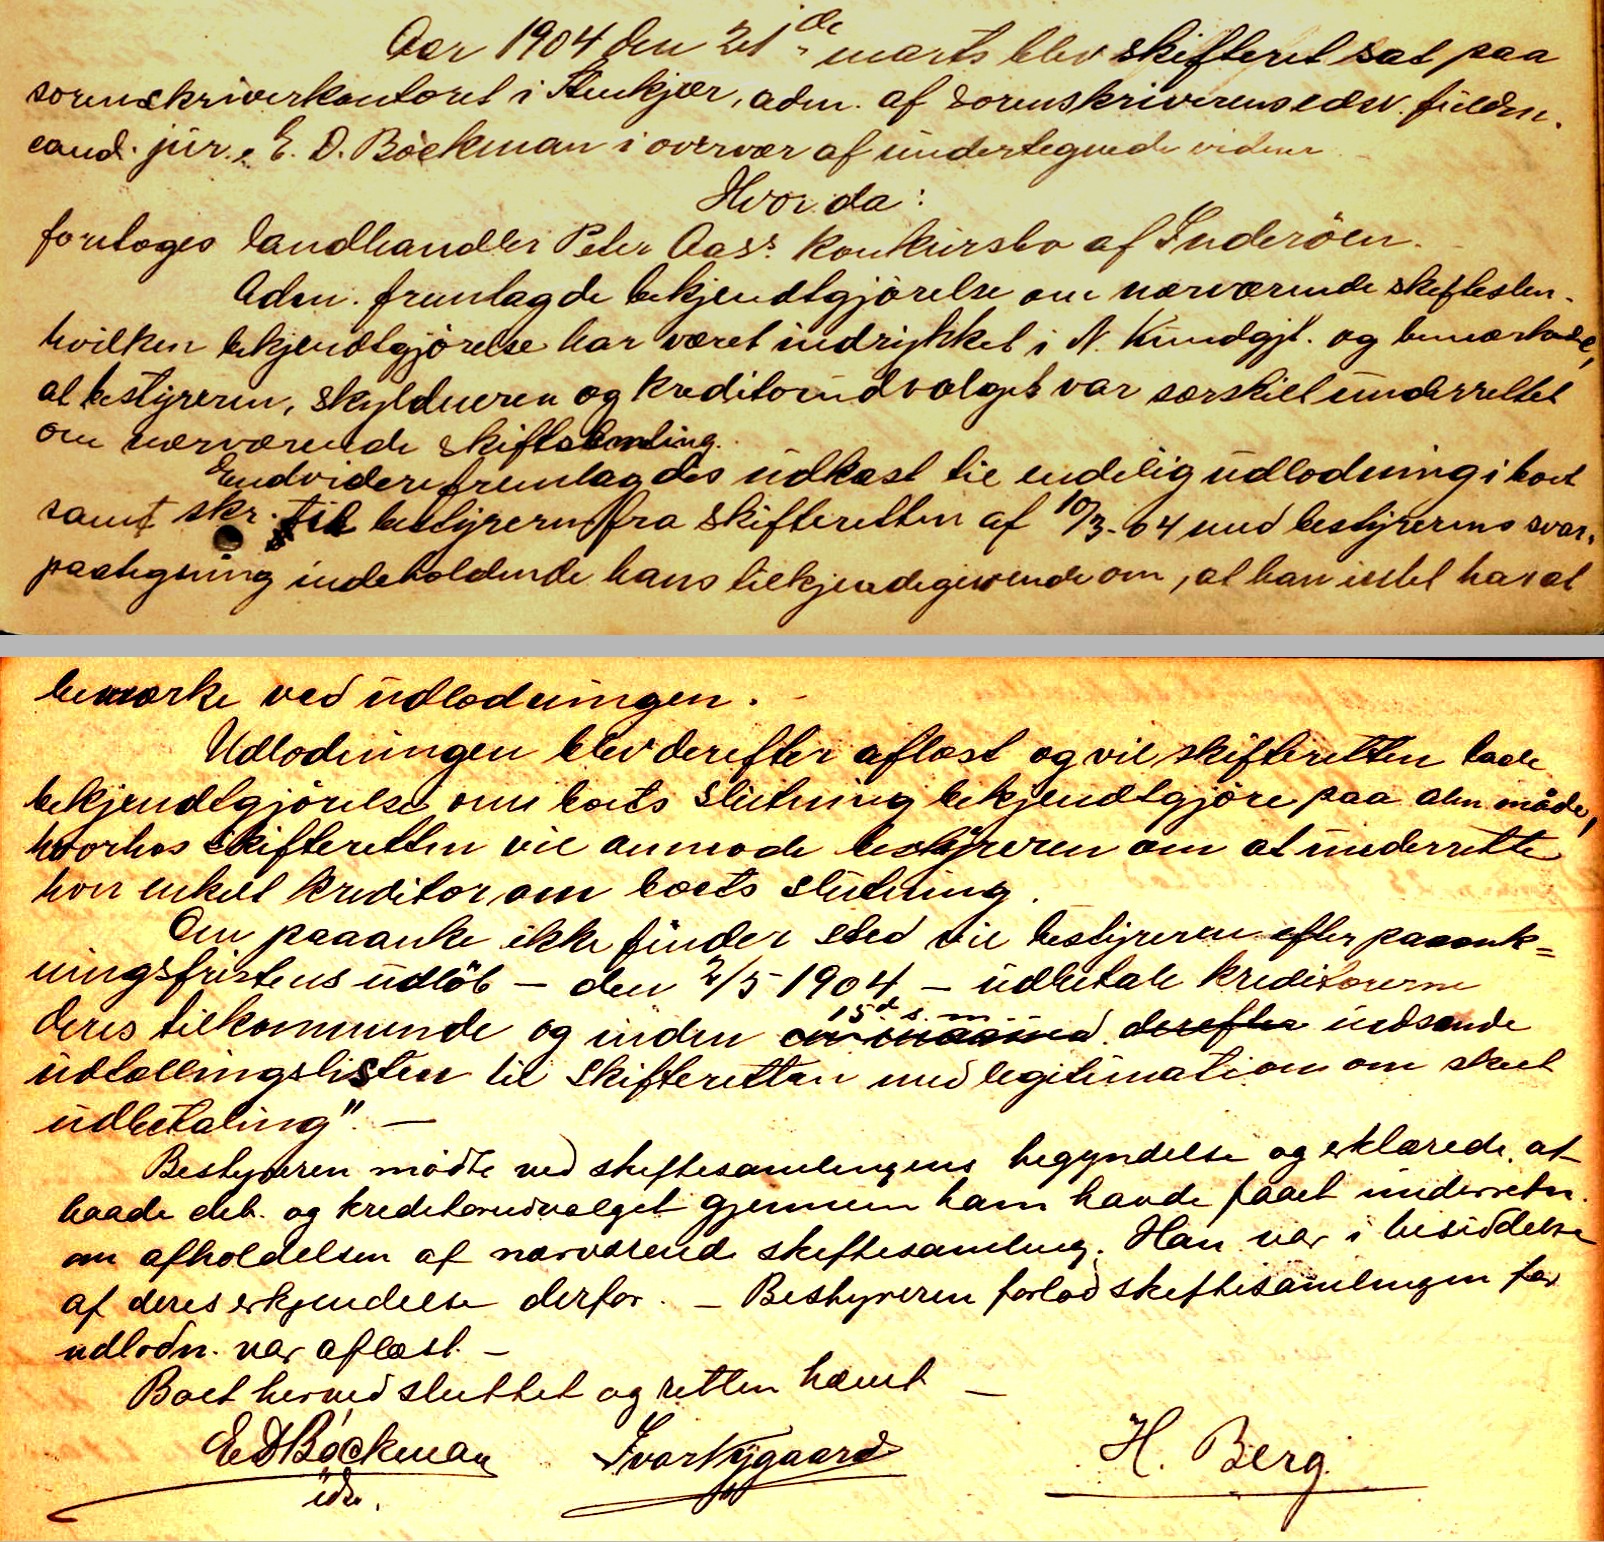 Aar 1904 den 21de marts blev skifteret sat paa
sorenskriverkontoret i Stenkjær, adm. af sorenskriverens edsv. fuldm.
cand. jur. E. D. Bøckman i overvær af undertegnede vidner
Hvor da:
foretoges landhandler Peter Aas's konkursbo af Inderöen.
Adm. fremlagde bekjendtgjörelse om nærværende skiftesten.
hvilken bekjendtgjörelse har været indrykket i N. Kundgjt. og bemærkede,
at bestyreren, skyldneren og kreditorudvalget var særskilt underrettet
om nærværende skiftesamling.
Endvidere fremlagdes udkast til endelig udlodning i boet
samt skr. til bestyreren fra skifteretten af 10/3-04 med bestyrerens svar.
paategning indeholdende hans tilkjendegivende om, at han intet har at
bemærke ved udlodningen.
Udlodningen blev derefter aflæst og vil skifteretten lade
bekjendtgjörelse om boets slutning bekjendtgjöre paa alm måde,
hvorhos skifteretten vil anmode bestyreren om at underrette
hver enkelt kreditor om boets slutning.
Om paaanke ikke finder sted vil bestyreren efter paaank=
ningsfristens udlöb — den 2/5 1904 — udbetale kreditorerne
deres tilkommende og inden en maaned 15d. s. m. derefter indsende
udtællingslisten til skifteretten med legitimation om skeet
udbetaling". —
Bestyreren mödte ved skiftesamlingens begyndelse og erklærede, at
baade deb. og kreditorudvalget gjennem ham havde faaet underretn.
om afholdelsen af nærværende skiftesamling. Han var i besiddelse
af deres erkjendelse derfor. — Bestyreren forlod skiftesamlingen før
udlodn. var aflæst. —
Boet herved sluttet og retten hævet —
EDBøckman Ivar Nygaard H. Berg
edsv.